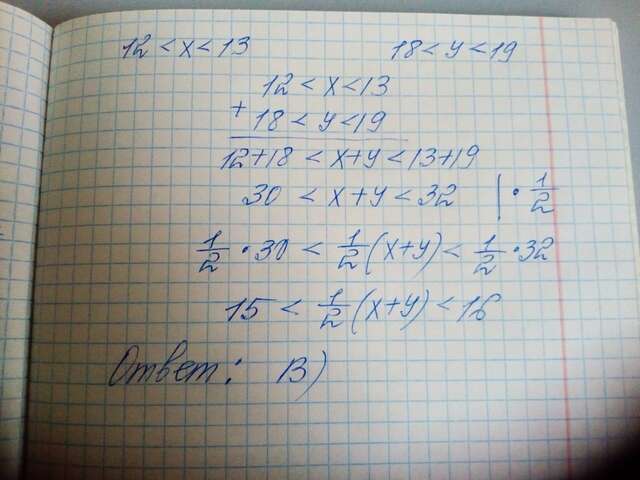 12 < x < 13 18 < y < 19
12 < x < 13
+ 18 < y < 19
12+18 < x+y < 13+19
30 < x+y < 32 | · 1/2
1/2 · 30 < 1/2 (x+y) < 1/2 · 32
15 < 1/2 (x+y) < 16
Ответ: В)